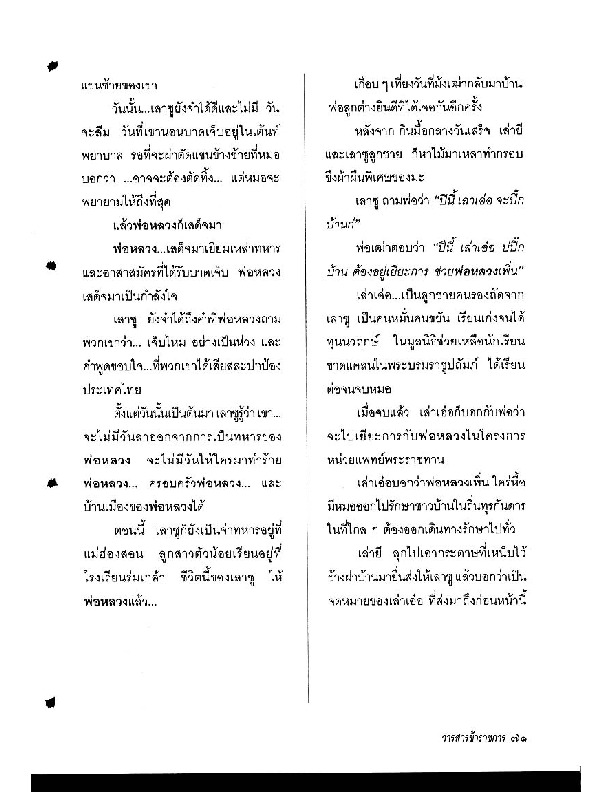 แขนซ้ายของเขา
วันนั้น...เลาซูยังจำได้ดีและไม่มี วัน
จะลืม วันที่เขานอนบาดเจ็บอยู่ในเต็นท์
พยาบาล รอที่จะผ่าตัดแขนข้างซ้ายที่หมอ
บอกว่า ...อาจจะต้องตัดทิ้ง... แต่หมอจะ
พยายามให้ถึงที่สุด
แล้วพ่อหลวงก็เสด็จมา
พ่อหลวง...เสด็จมาเยี่ยมเหล่าทหาร
และอาสาสมัครที่ได้รับบาดเจ็บ พ่อหลวง
เสด็จมาเป็นกำลังใจ
เลาซู ยังจำได้ถึงคำที่พ่อหลวงถาม
พวกเขาว่า... เจ็บไหม อย่างเป็นห่วง และ
คำพูดขอบใจ...ที่พวกเขาได้เสียสละปกป้อง
ประเทศไทย
ตั้งแต่วันนั้นเป็นต้นมา เลาซูรู้ว่า เขา...
จะไม่มีวันลาออกจากการเป็นทหารของ
พ่อหลวง จะไม่มีวันให้ใครมาทำร้าย
พ่อหลวง... ครอบครัวพ่อหลวง... และ
บ้านเมืองของพ่อหลวงได้
ตอนนี้ เลาซูก็ยังเป็นจ่าทหารอยู่ที่
แม่ฮ่องสอน ลูกสาวตัวน้อยเรียนอยู่ที่
โรงเรียนร่มเกล้า ชีวิตนี้ของเลาซู ให้
พ่อหลวงแล้ว...
เกือบ ๆ เที่ยงวันที่ม้งเฒ่ากลับมาบ้าน
พ่อลูกต่างยินดีที่ได้เจอกันอีกครั้ง
หลังจาก กินมื้อกลางวันเสร็จ เล่ายี
และเลาซูลูกชาย ก็หาไม้มาเหลาทำกรอบ
ขึงผ้าผืนพิเศษของมะ
เลาซู ถามพ่อว่า "ปีนี้ เลาเอ๋อ จะปิ๊ก
บ้านก่"
พ่อเฒ่าตอบว่า "ปีนี้ เล่าเอ๋อ บ่ปิ๊ก
บ้าน ต้องอยู่เยียะการ ช่วยพ่อหลวงเพิ่น"
เล่าเอ๋อ...เป็นลูกชายคนรองถัดจาก
เลาซู เป็นคนหมั่นคนขยัน เรียนเก่งจนได้
ทุนนวฤกษ์ ในมูลนิธิช่วยเหลือนักเรียน
ขาดแคลนในพระบรมราชูปถัมภ์ ได้เรียน
ต่อจนจบหมอ
เมื่อจบแล้ว เล่าเอ๋อก็บอกกับพ่อว่า
จะไปเยียะการกับพ่อหลวงในโครงการ
หน่วยแพทย์พระราชทาน
เล่าเอ๋อบอกว่าพ่อหลวงเพิ่น ใคร่ฮื้อ
มีหมอออกไปรักษาชาวบ้านในถิ่นทุรกันดาร
ในที่ไกล ๆ ต้องออกเดินทางรักษาไปทั่ว
เล่ายี ลุกไปเอากระดาษที่เหน็บไว้
ข้างฝาบ้านมายื่นส่งให้เลาซู แล้วบอกว่าเป็น
จดหมายของเล่าเอ๋อ ที่ส่งมาถึงก่อนหน้านี้
วารสารข้าราชการ ๗๑